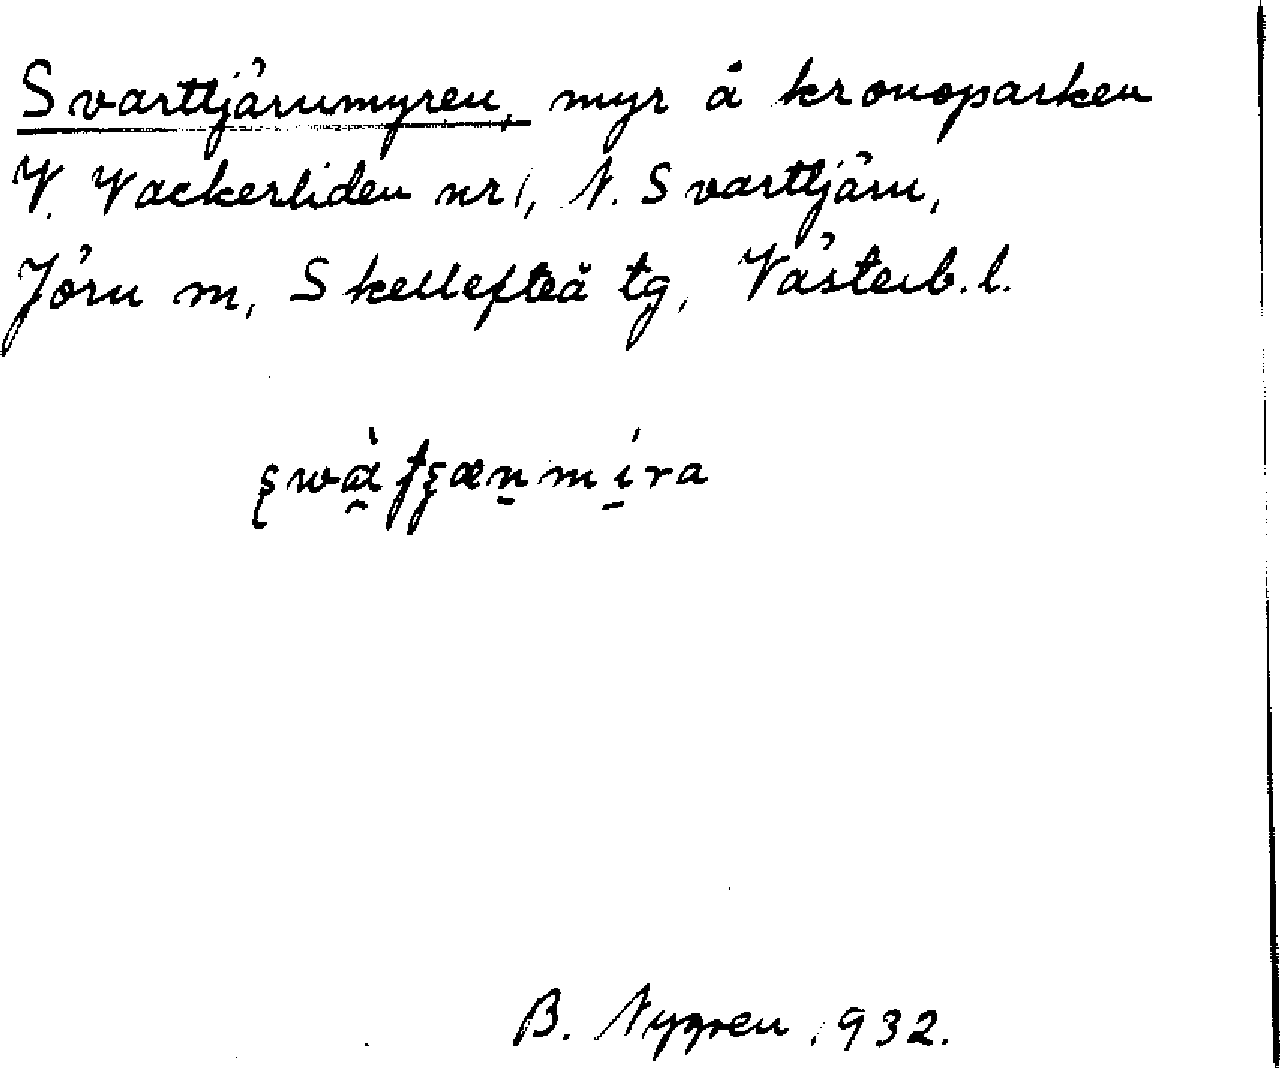 Svarttjärnmyren, myr å kronoparken
V. Vackerliden nr 1, N. Svarttjärn,
Jörn sn, Skellefteå tg, Västerb. l.
B. Nygren 1932.